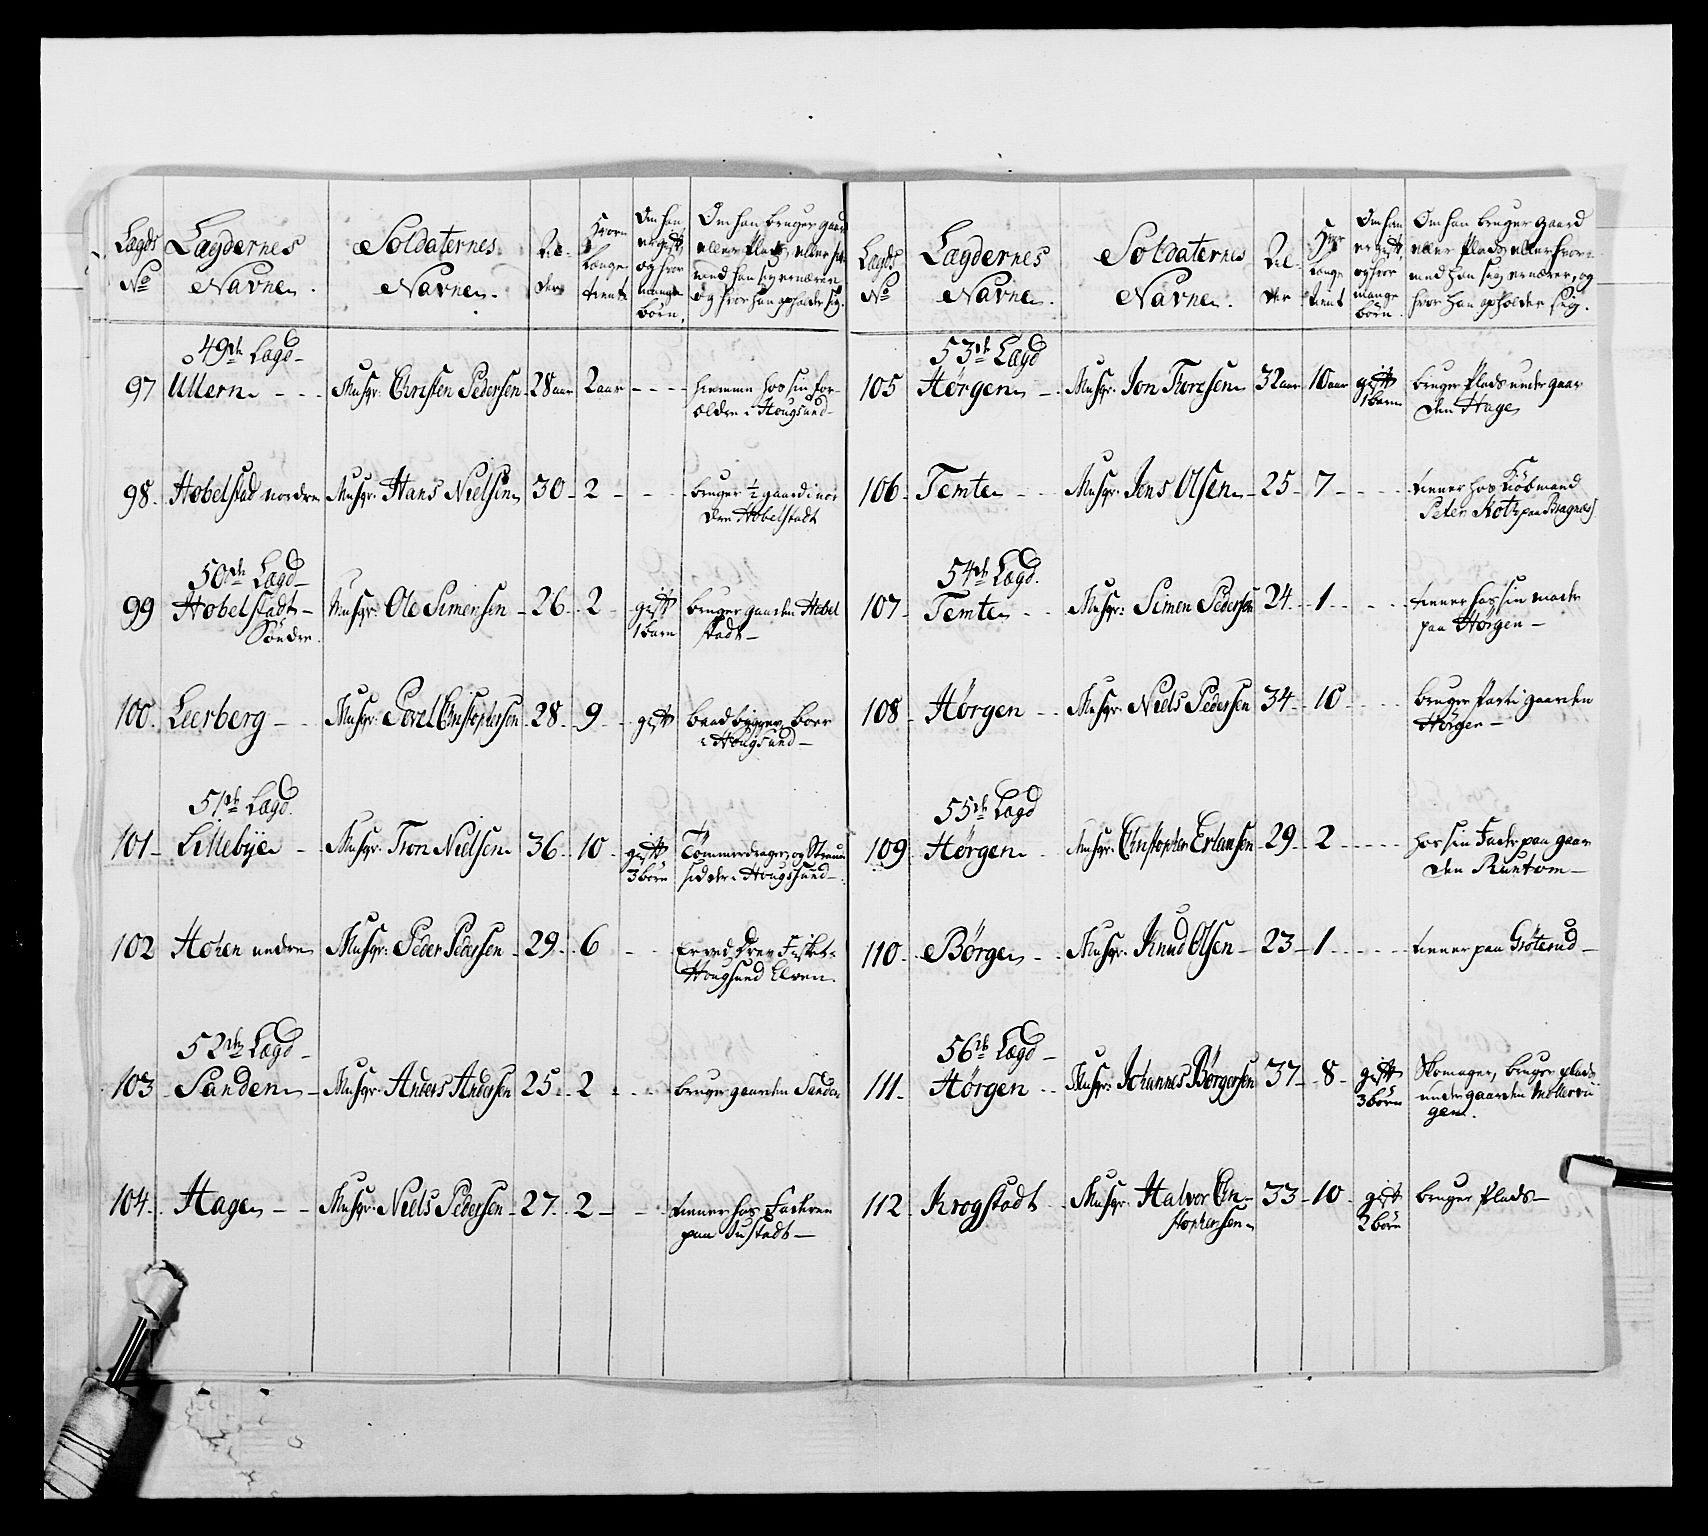 Lægds No
Lægdernes Navne.
Soldaternes Navne.
Al- der
Hvor længe tient
Om han er gift og hvor mange börn.
Om han bruger gaard eller Plads, eller hvor- med han sig ernærer og hvor han opholder sig.
49de Lægd-
97 Ullern - - - Musqr. Christen Pedersen - 28 aar 2 aar - - - - hiemme hos sin for-
ældre i Hougsund-
98. Hobelstad nordre Musqr. Hans Nielsen 30 - 2 - - - - bruger ½ gaard i nor
dre Hobelstadt
50de Lægd-
99 Hobelstadt - Musqr. Ole Simensen - 26 - 2 gift bruger gaarden Hobel
Söndre. 1 barn stadt -
100. Leerberg - - Musqr. Povel Christophersen 28 - 9 - gift baadbygger, boer
i Hougsund -
51de Lægd.
101 - Lillebye - Musqr. Tron Nielsen 36 - 10 - gift Tömmerdrager og Strand
3 börn sidder i Hougsund -
102 Hohen nedre Musqr. Peder Pedersen - 29 - 6 - - Er ved Drev Fisket
Hougsund Elven.
52de Lægd -
103 Sanden - Musqr. Anders Andersen 25 - 2 - - - - bruger gaarden Sanden
104 - Hagen - - Musqr. Niels Pedersen - 27 - 2 - - - tiener hos Faderen
paa Sustadt -
Lægds No
Lægdernes Navne.
Soldaternes Navne.
Al- der
Hvor længe tient
Om han er gift, og hvor mange börn
Om han bruger gaard eller Plads, eller hvor- med han sig ernærer, og hvor han opholder sig.
53de Lægd
105 Hörgen - Musqr. Jon Thoresen 32 aar 10 aar gift bruger Plads under gaar
1 barn den Hagen
106 - Temte - - Musqr. Jens Olsen - 25 - 7 - - - - tiener hos Kiöbmand
Peter Kotz paa Bragnæs
54de Lægd.
107 - Temte - - Musqr: Simon Pedersen 24 - 1 - - - tiener hos sin moder
paa Hörgen -
108 - Hörgen - - Musqr. Niels Pedersen 34 - 10 - - - bruger Part i gaarden
Hörgen -
55de Lægd
109 Hörgen - Musqr. Christopher Erlandsen 29 - 2 - - - - - hos sin Fader paa gaar
den Runtom -
110 - Börgen - - Musqr. Knud Olsen - 23 - 1 - - - - tiener paa Gröterud -
56de Lægd -
111 - Hörgen - - Musqr: Johannes Börgersen 37 - 8 - gift Skomager, bruger plads
3 börn under gaarden
gen.
112 Krogstadt - Musqr. Halvor Chri- 33 - 10 - gift bruger Plads -
stophersen 2 börn